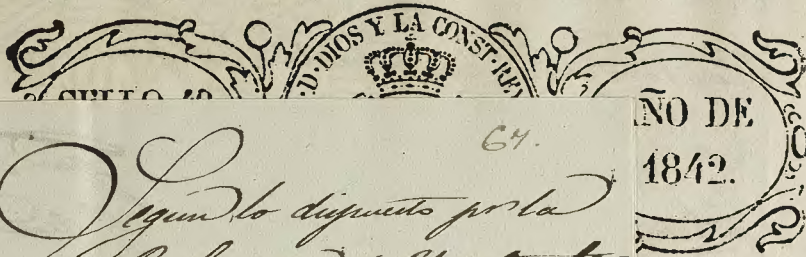 ·D·DIOS Y LA CONST·REY
SELLO 4º
AÑO DE
1842.
67.
Segun lo dispuesto por la